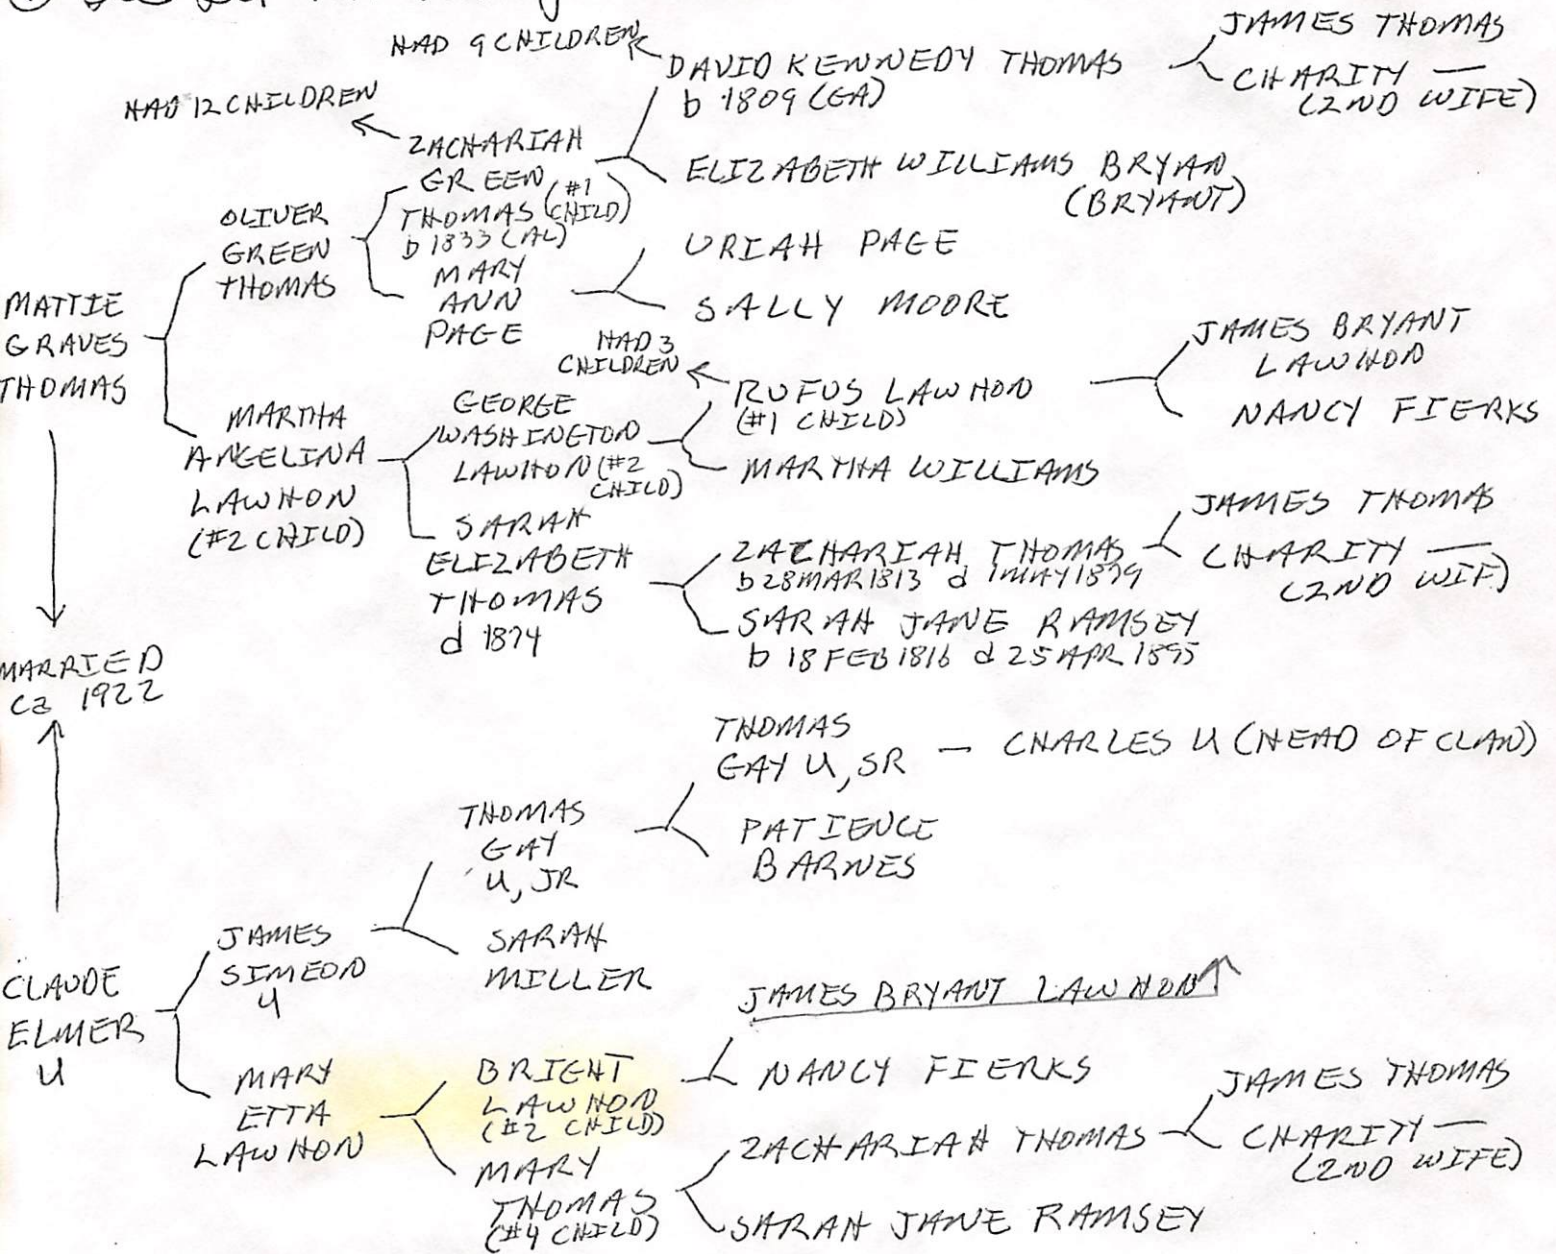 HAD 9 CHILDREN
DAVID KENNEDY THOMAS
b 1809 (GA)
JAMES THOMAS
CHARITY —
(2ND WIFE)
HAD 12 CHILDREN
ZACHARIAH
GREEN (#1
THOMAS CHILD)
b 1833 (AL)
ELIZABETH WILLIAMS BRYAN
(BRYANT)
OLIVER
GREEN
THOMAS
MARY
ANN
PAGE
URIAH PAGE
SALLY MOORE
MATTIE
GRAVES
THOMAS
HAD 3
CHILDREN
RUFUS LAWHON
(#1 CHILD)
JAMES BRYANT
LAWHON
NANCY FIERKS
MARTHA
ANGELINA
LAWHON
(#2 CHILD)
GEORGE
WASHINGTON
LAWHON (#2
CHILD)
MARTHA WILLIAMS
SARAH
ELIZABETH
THOMAS
d 1874
ZACHARIAH THOMAS
b 28 MAR 1813 d 1 MAY 1879
JAMES THOMAS
CHARITY —
(2ND WIF)
SARAH JANE RAMSEY
b 18 FEB 1816 d 25 APR 1895
MARRIED
ca 1922
THOMAS
GAY U, SR — CHARLES U (HEAD OF CLAN)
THOMAS
GAY
U, JR
PATIENCE
BARNES
JAMES
SIMEON
U
SARAH
MILLER
CLAUDE
ELMER
U
JAMES BRYANT LAWHON
MARY
ETTA
LAWHON
BRIGHT
LAWHON
(#2 CHILD)
NANCY FIERKS
MARY
THOMAS
(#4 CHILD)
ZACHARIAH THOMAS
JAMES THOMAS
CHARITY —
(2ND WIFE)
SARAH JANE RAMSEY